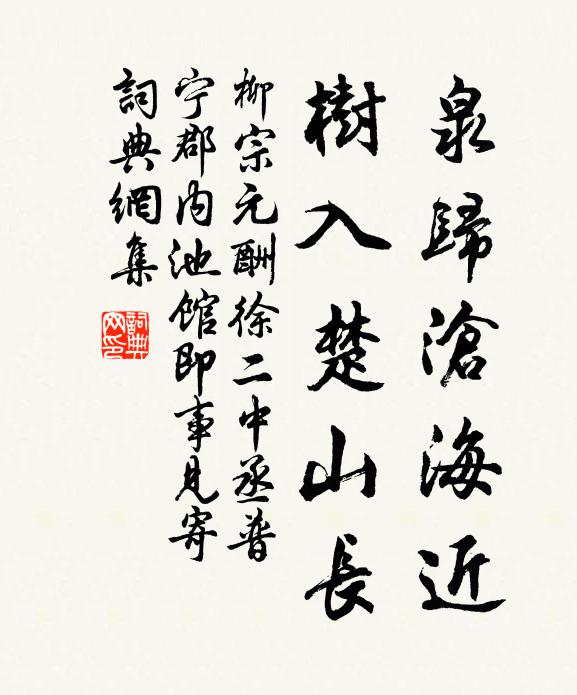 泉歸滄海近
樹入楚山長
柳宗元酬徐二中丞普
宁郡内池館即事見寄
詞典網集
詞典
网印